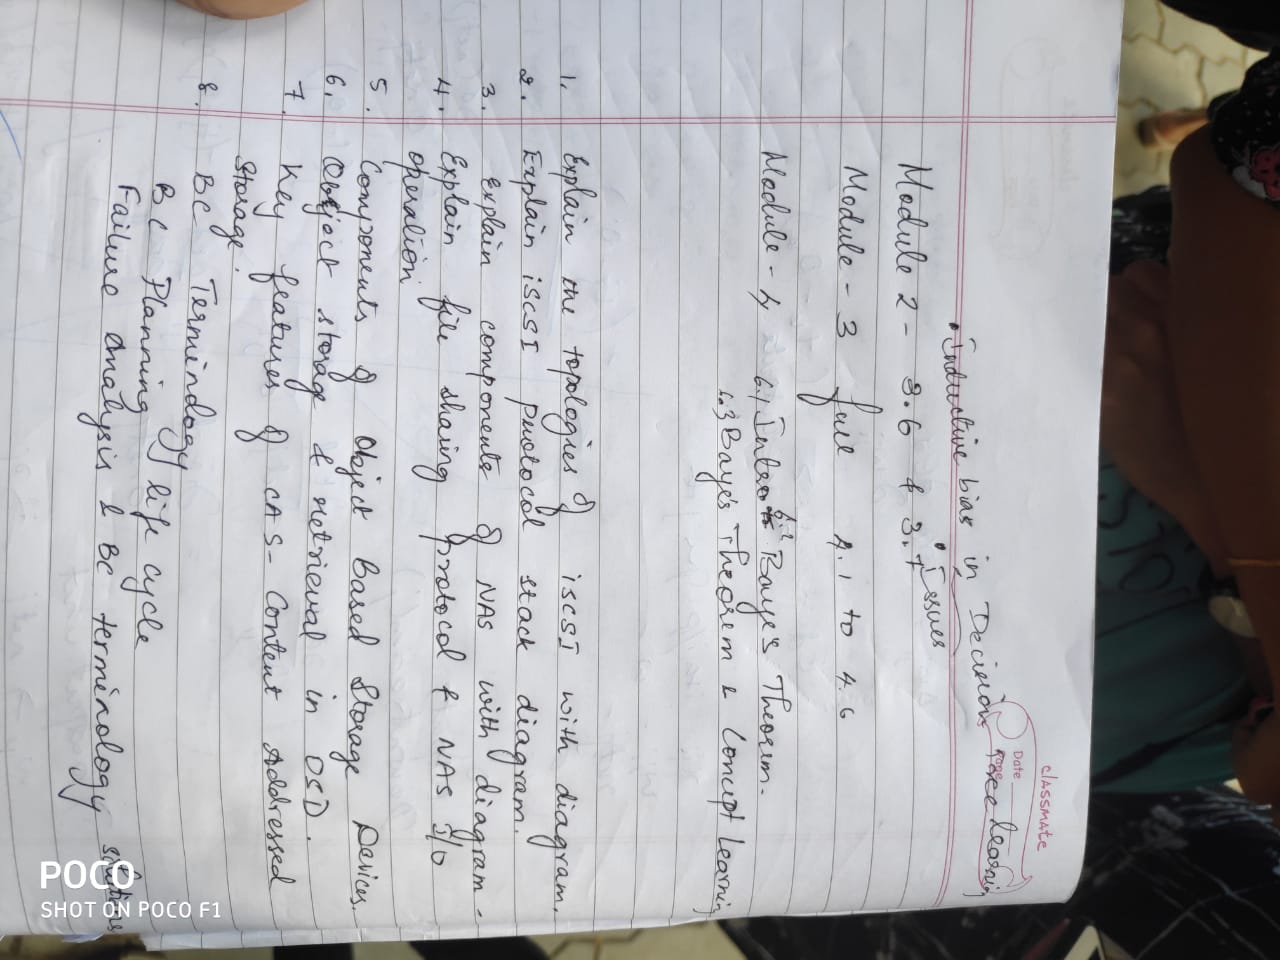 classmate
Date
Page
• Inductive bias in Decision Tree learning
• Issues
Module 2 - 3.6 & 3.7
Module - 3 full 4.1 to 4.6
Module - 4 6.1 Intro 6.2 Bayes Theorem.
6.3 Bayes Theorem & Concept Learning
1. Explain the topologies of iscsI with diagram.
2. Explain iscsI protocol stack diagram.
3. Explain components of NAS with diagram.
4. Explain file sharing protocol & NAS I/O
operation.
5. Components of Object Based Storage Devices.
6. Object storage & retrieval in OSD.
7. Key features of CAS - Content Addressed
Storage.
8. BC Terminology
BC Planning life cycle
Failure analysis & BC terminology solutions
POCO
SHOT ON POCO F1